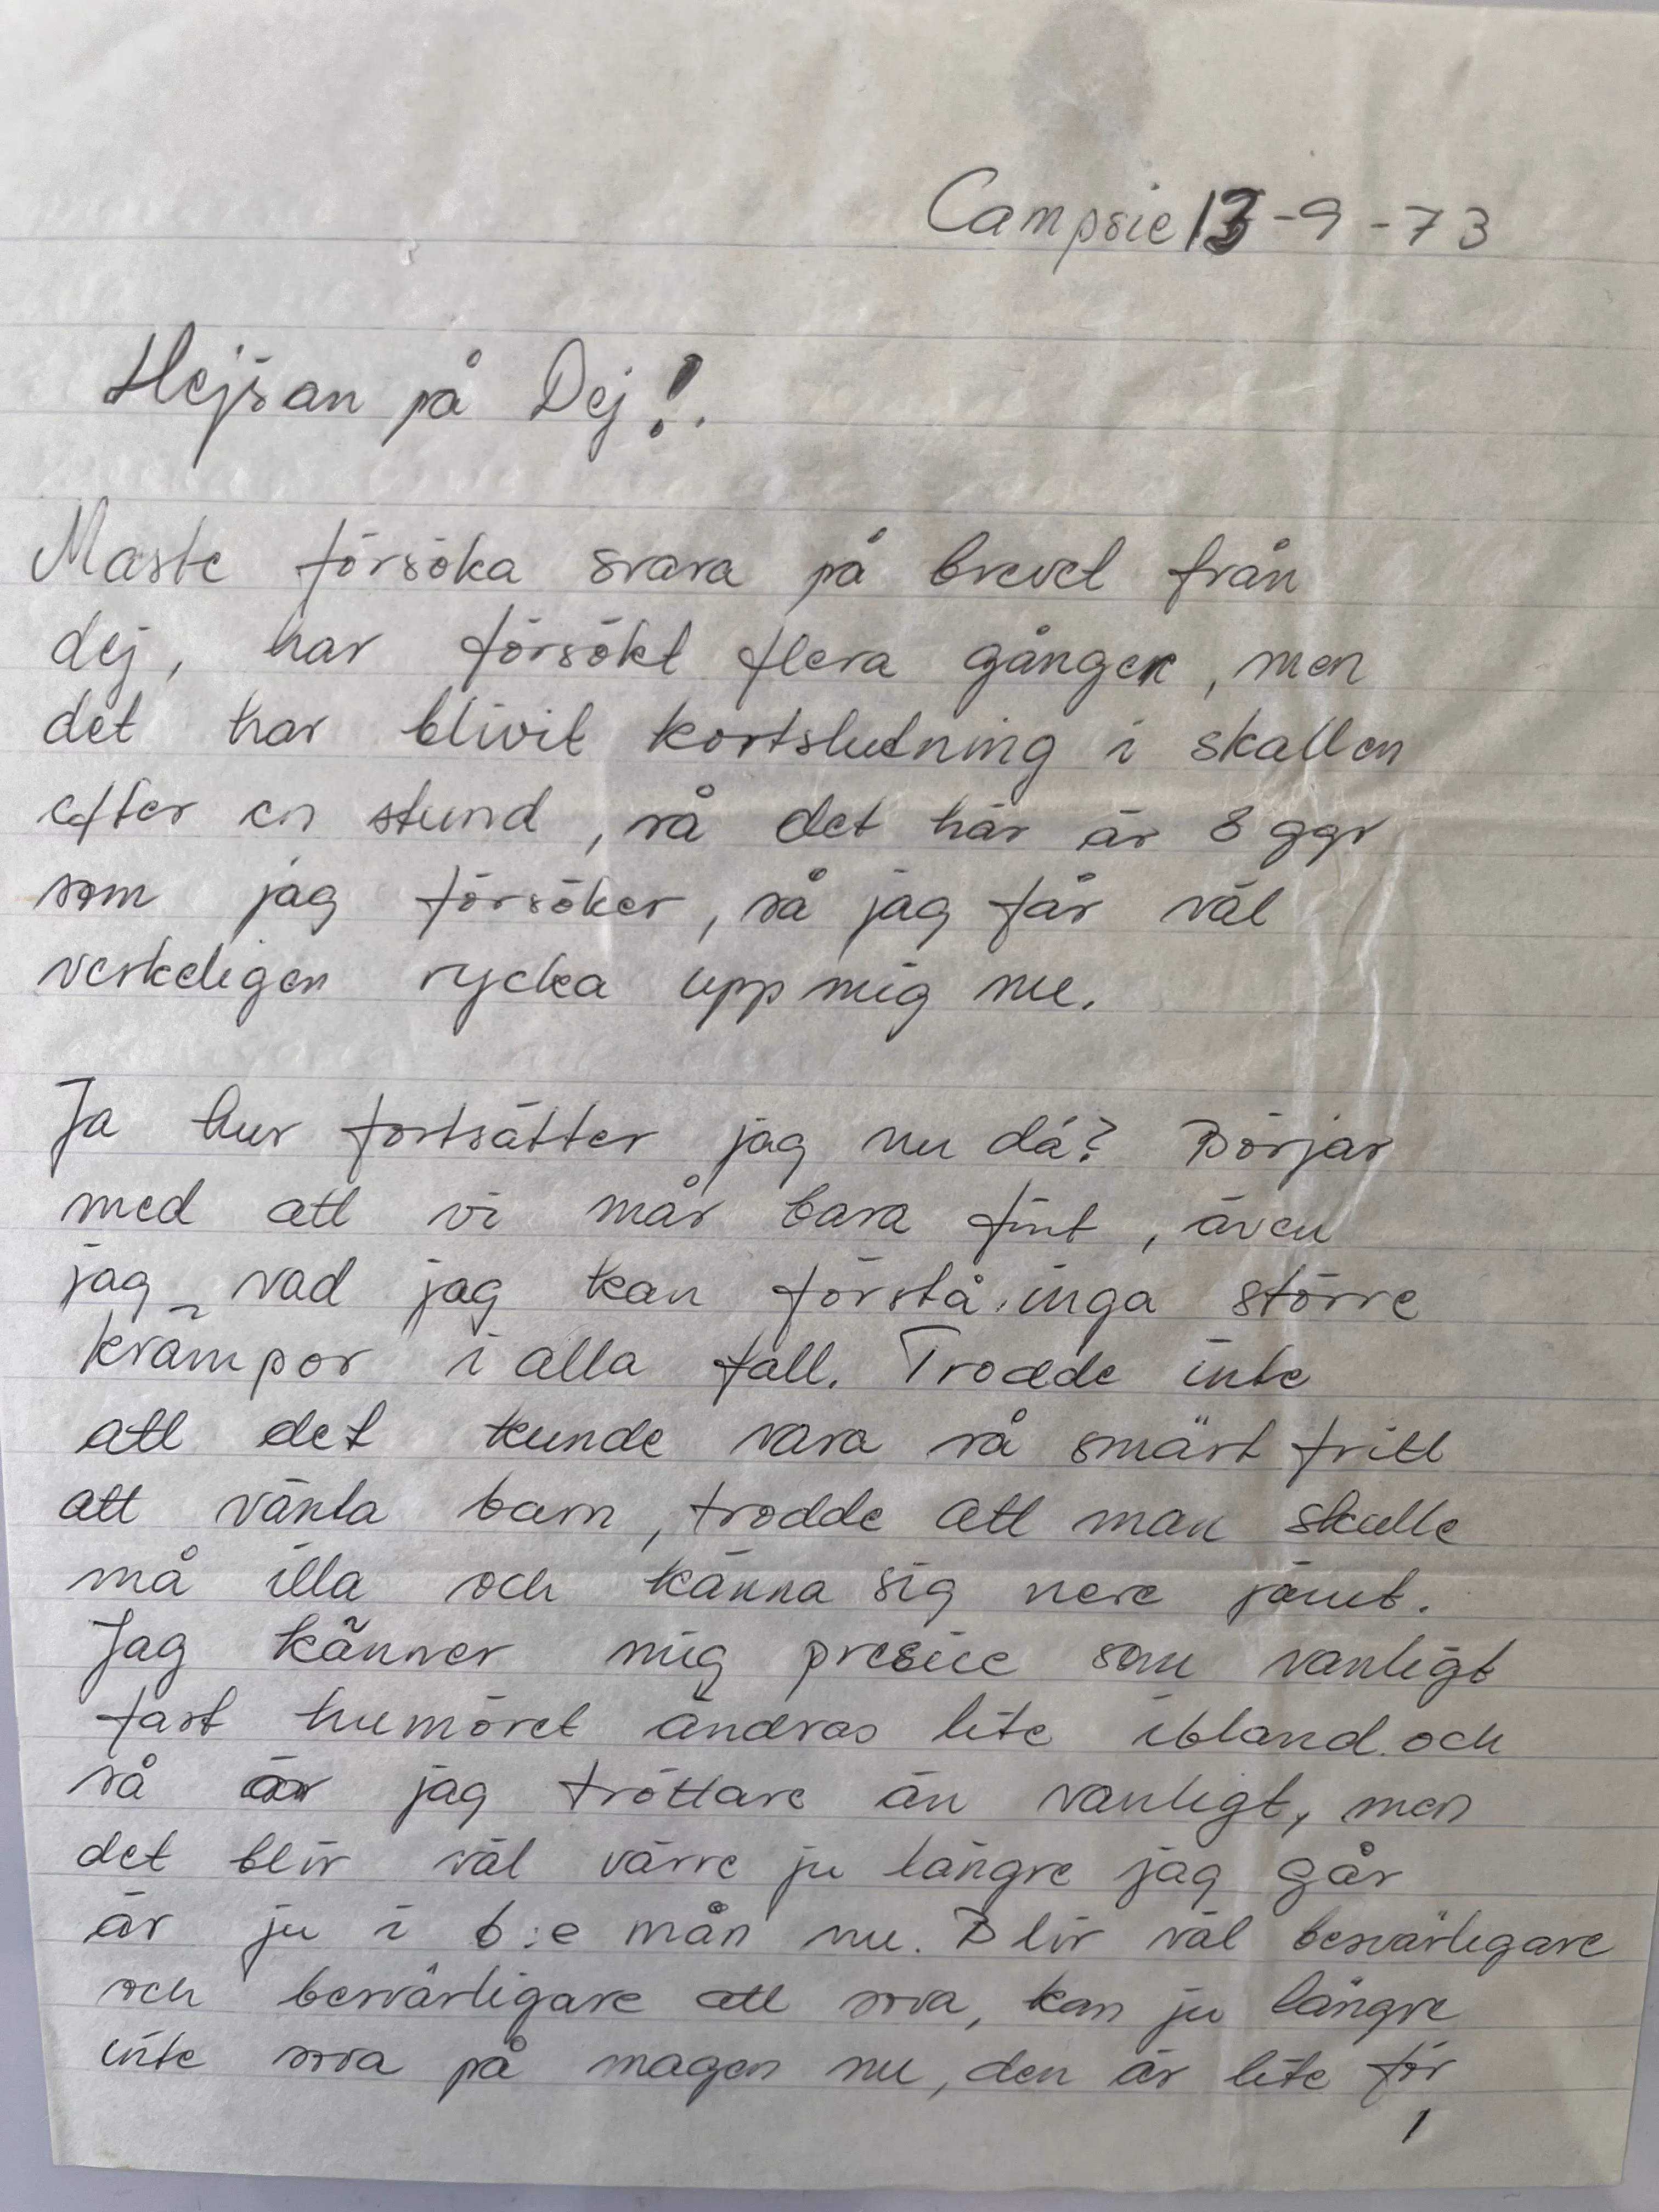 Campsie 13-9-73
Hejsan på Dej!.
Maste försöka svara på brevet från
dej, har försökt flera gånger, men
det har blivit kortslutning i skallen
efter en stund, så det här är 8 ggr
som jag försöker, så jag får väl
verkeligen rycka upp mig nu.
Ja hur fortsätter jag nu då? Börjar
med att vi mår bara fint, även
jag vad jag kan förstå, inga större
krämpor i alla fall. Trodde inte
att det kunde vara så smärt fritt
att vänta barn, trodde att man skulle
må illa och känna sig nere jämt.
Jag känner mig presice som vanligt
fast humöret ändras lite ibland och
så är jag tröttare än vanligt, men
det blir väl värre ju längre jag går
är ju i 6:e mån nu. Blir väl besvärligare
och besvärligare att sova, kan ju längre
inte sova på magen nu, den är lite för
1